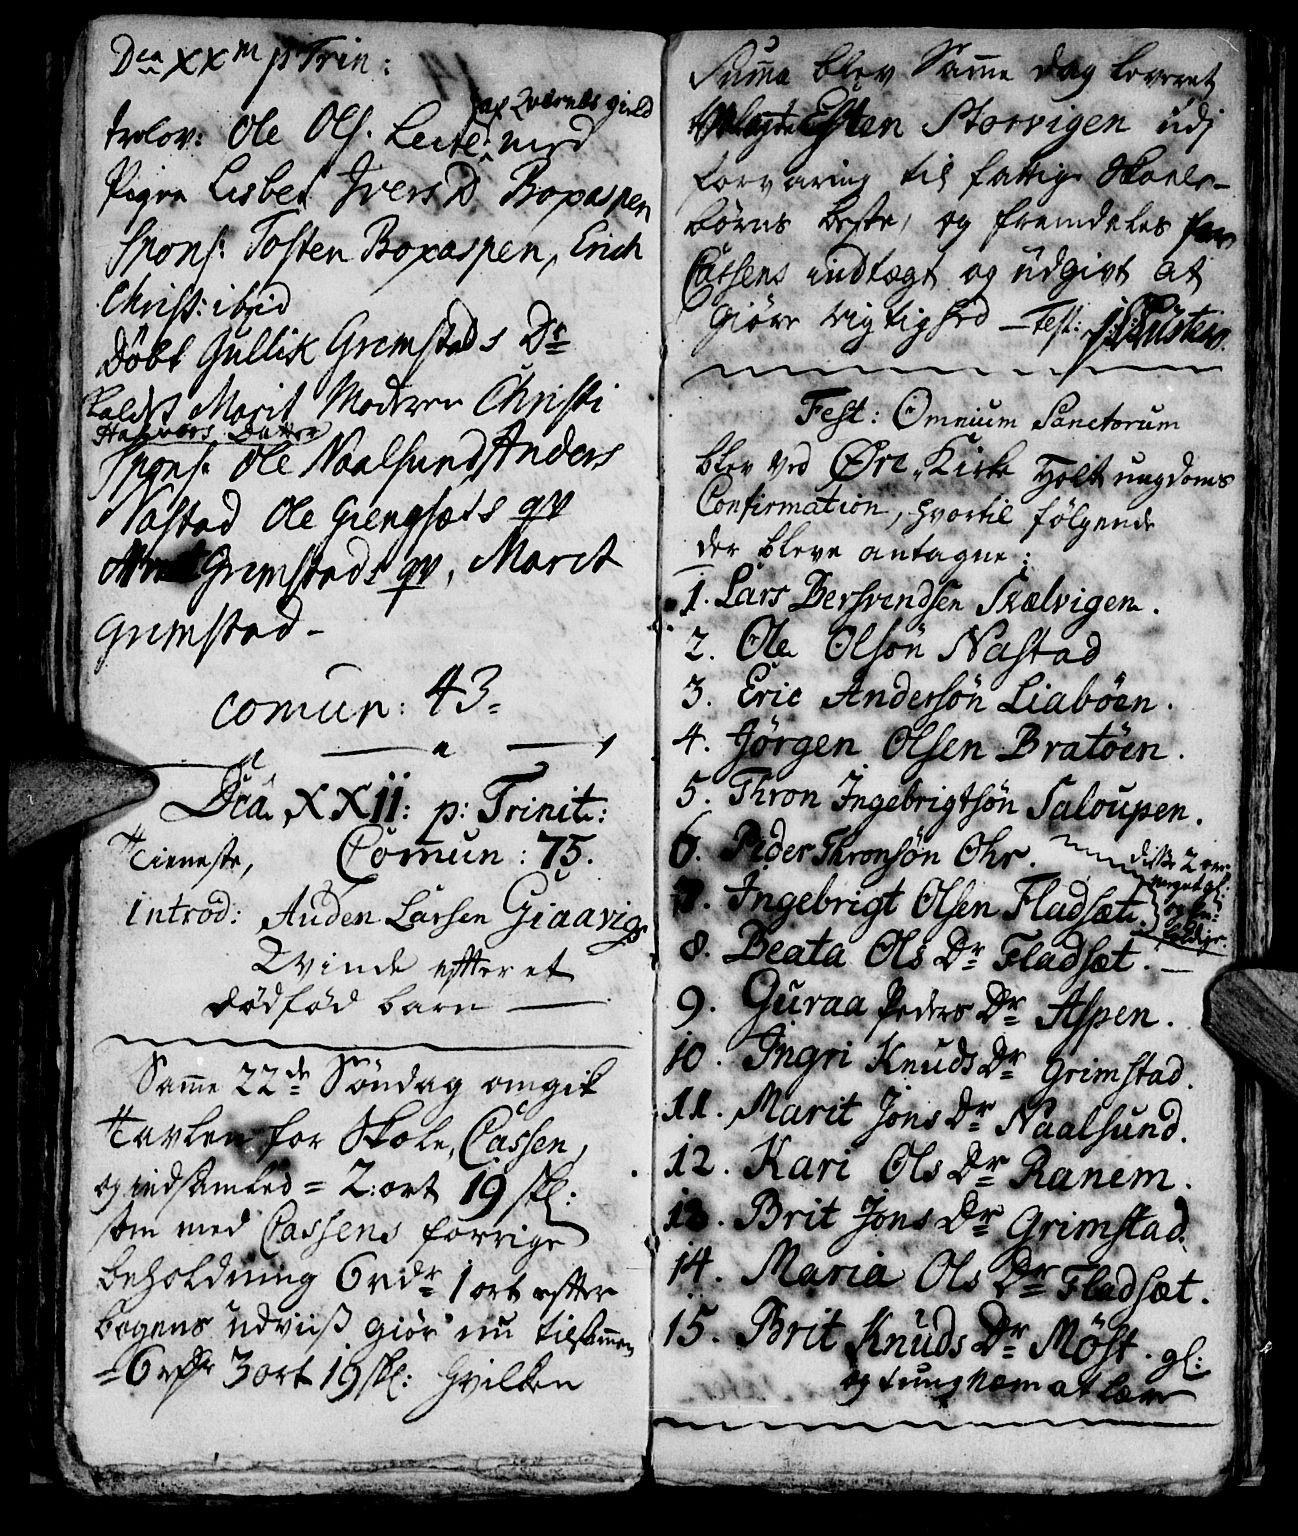 Dca XXm p Trin:
trolov: Ole Ols. Leite, af Qværnes gield med
Pigen Lisbet IversD Boxaspen
Spons: Tosten Boxaspen, Erich
Christ: ibid
Døbt Gullik Gremstads Dr
kaldet Marit Moderen Christi
Halvors Datter
Spons: Ole Naalsund, Anders
Nastad Ole Giengsæts qv
Gremstads qv, Marit
Grimstad -
comun: 43
Dca XXII: p: Trinit:
Tieneste, Comun: 75.
introd: Auden Larsen Giaavigs
Qvinde effter et
dødfød barn
Samme 22de Søndag omgik
Tavlen for Skole-Cassen,
og indsamled = 2: ort 19 skl:
som med Cassens forrige
beholdning 6 rdr 1 ort effter
bogens udviis giør nu tilsammen
= 6 rdr 3 ort 19 skl: Hvilken
Summa blev Samme dag leveret
Esten Storvigen udj
forvaring til fattige Skoele-
børns beste, og fremdeles for
Cassens indtægt og udgivt at
giøre rigtighed - Test:
Fest: Omnium Sanctorum
blev ved Øre-Kirke Holt ungdoms
Confirmation, hvortil følgende
der bleve antagne:
1. Lars Bersvendsen Skælvigen.
2. Ole Olsøn Nastad
3. Eric Andersøn Liabøen.
4. Jørgen Olsen Bratøen.
5. Thron Ingebrigtsøn Saloupen.
6. Peder Thronsøn Ohr. disse 2 er
meget gl:
7. Ingebrigt Olsen Fladsæt. og en-
foldige.
8. Beata Ols Dr Fladsæt.
9. Guraa Peders Dr Aspen.
10. Ingri Knuds Dr Grimstad.
11. Marit Jons Dr Naalsund.
12. Kari Ols Dr Ranem.
13. Brit Jons Dr Grimstad.
14. Maria Ols Dr Fladsæt.
15. Brit Knuds Dr Møst. gl:
og tung nem at lære